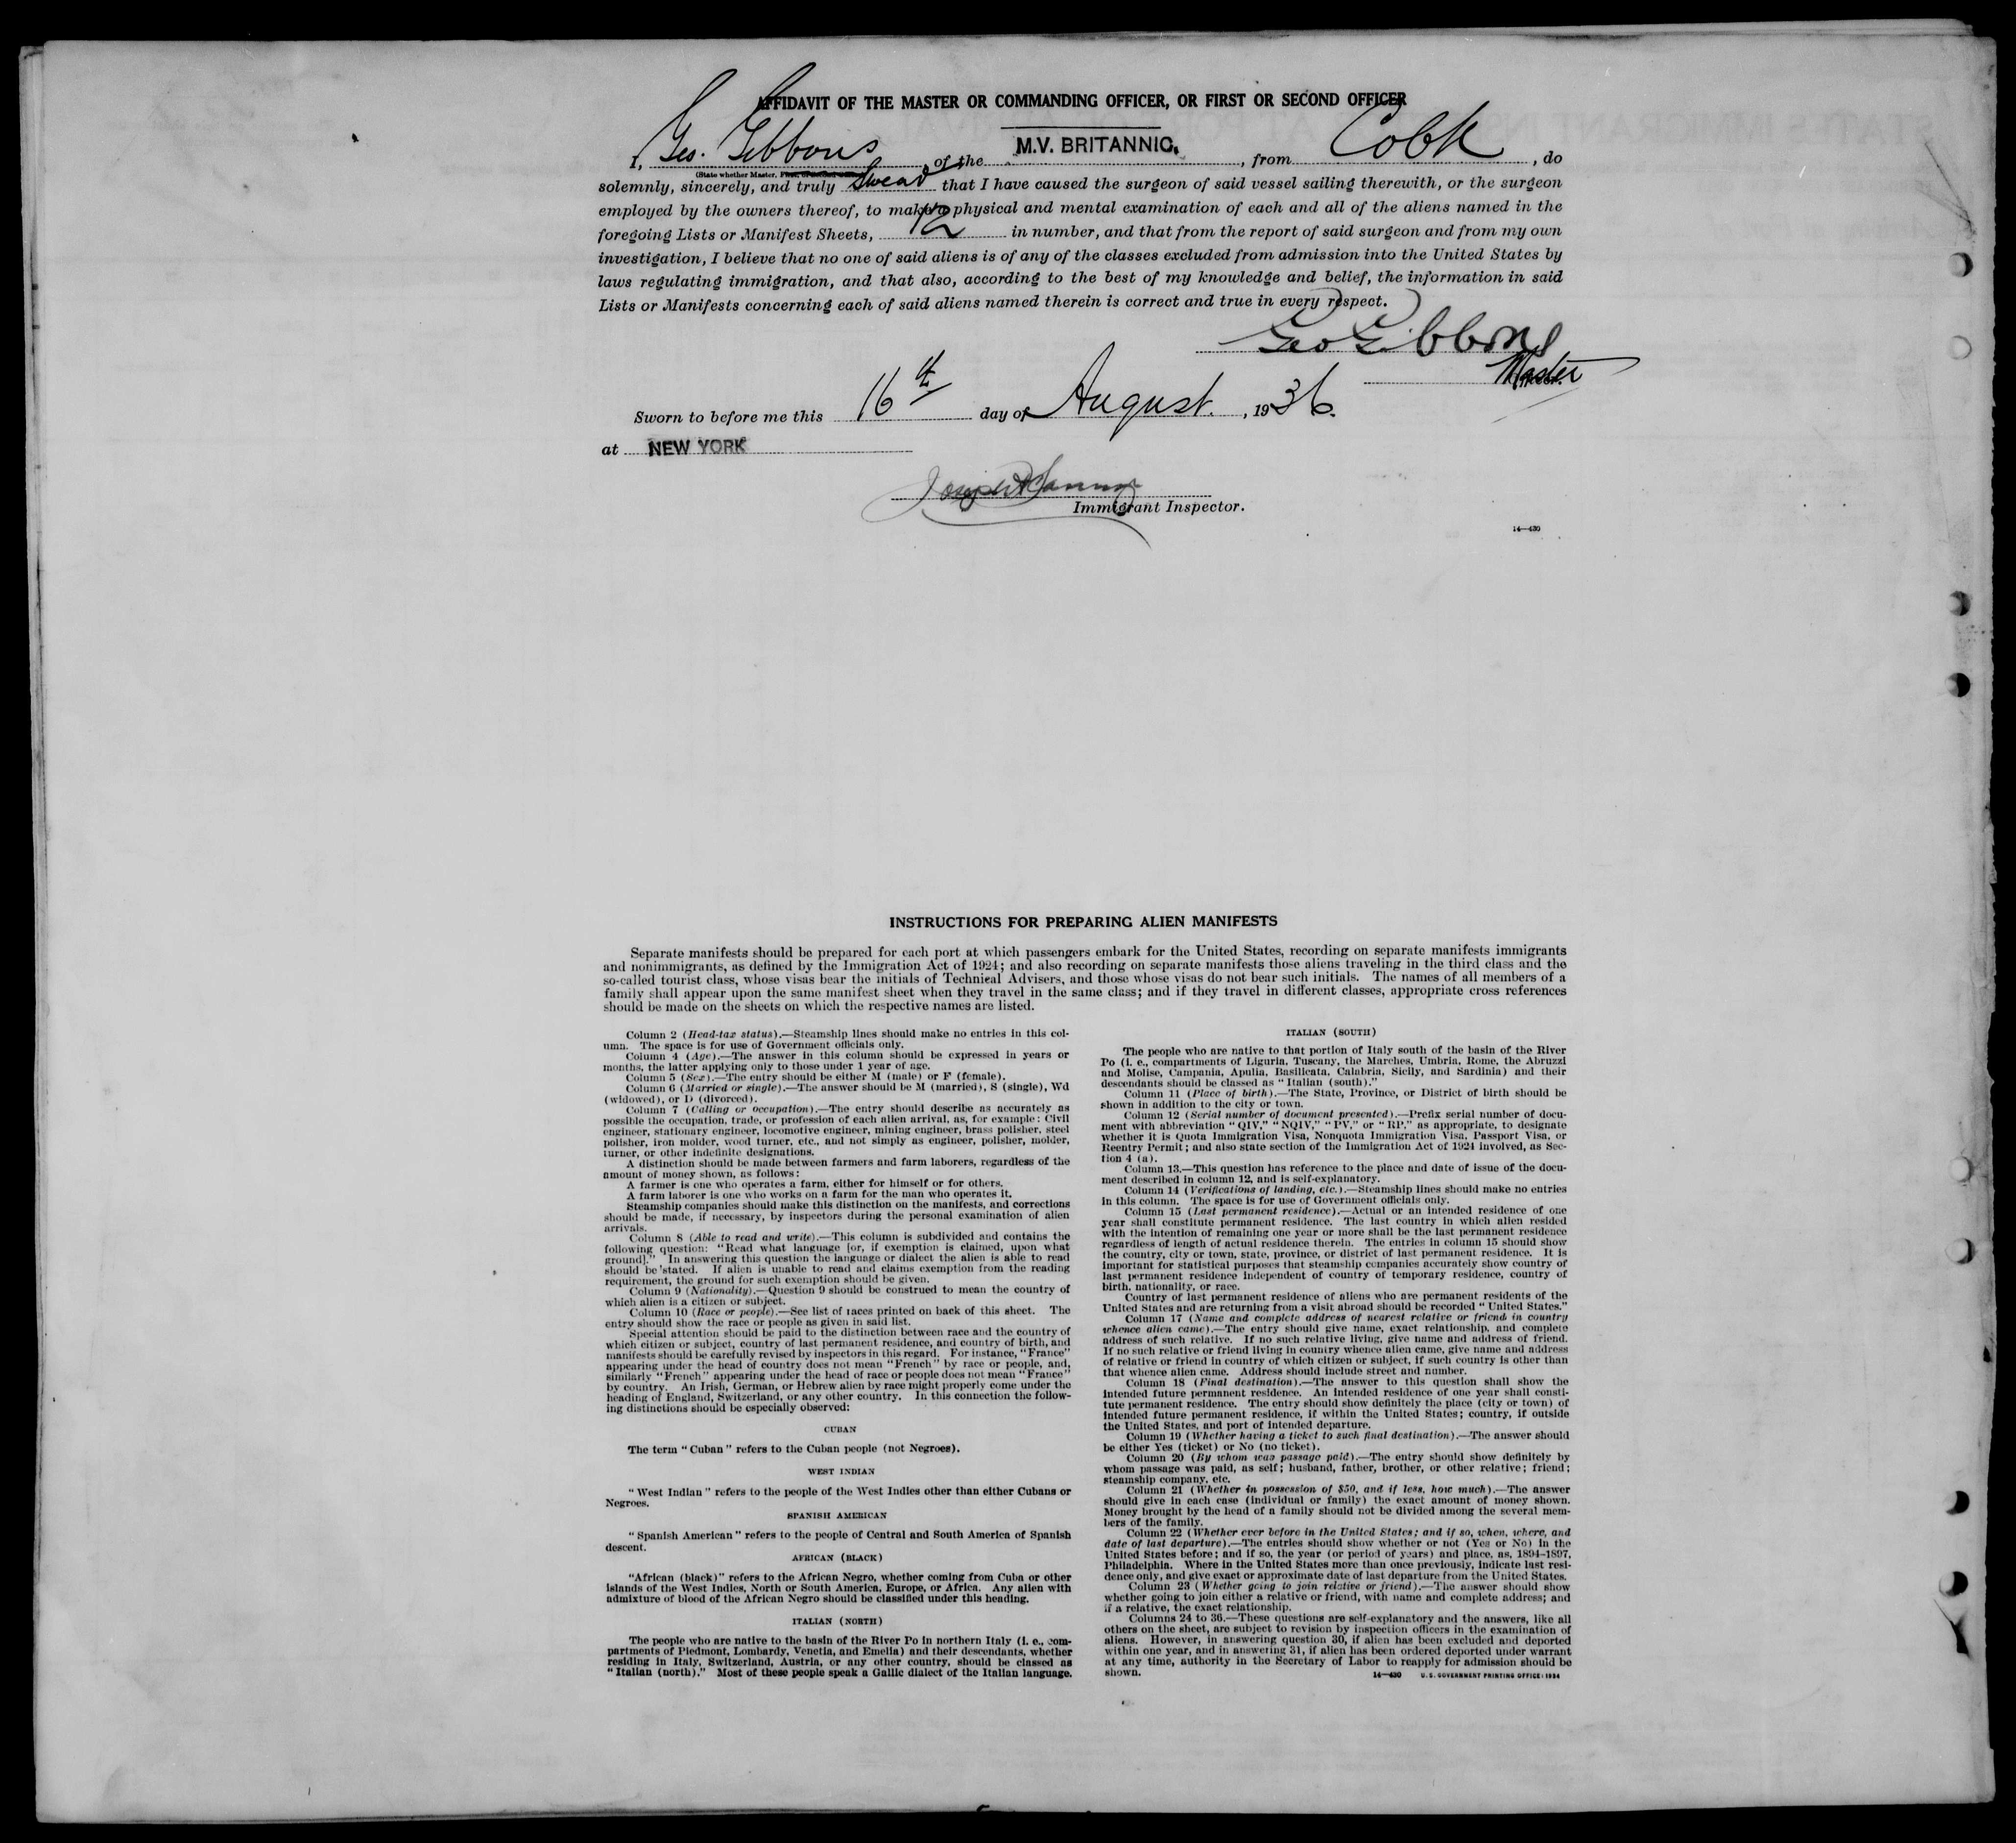 AFFIDAVIT OF THE MASTER OR COMMANDING OFFICER, OR FIRST OR SECOND OFFICER
I, Geo. Gibbons, of the M.V. BRITANNIC, from Cobh, do
(State whether Master, First, or Second Officer)
solemnly, sincerely, and truly swear that I have caused the surgeon of said vessel sailing therewith, or the surgeon
employed by the owners thereof, to make a physical and mental examination of each and all of the aliens named in the
foregoing Lists or Manifest Sheets, 12 in number, and that from the report of said surgeon and from my own
investigation, I believe that no one of said aliens is of any of the classes excluded from admission into the United States by
laws regulating immigration, and that also, according to the best of my knowledge and belief, the information in said
Lists or Manifests concerning each of said aliens named therein is correct and true in every respect.
Geo Gibbons
Master
Sworn to before me this 16th day of August., 1936.
at NEW YORK
Immigrant Inspector.
14—430
INSTRUCTIONS FOR PREPARING ALIEN MANIFESTS
Separate manifests should be prepared for each port at which passengers embark for the United States, recording on separate manifests immigrants
and nonimmigrants, as defined by the Immigration Act of 1924; and also recording on separate manifests those aliens traveling in the third class and the
so-called tourist class, whose visas bear the initials of Technical Advisers, and those whose visas do not bear such initials. The names of all members of a
family shall appear upon the same manifest sheet when they travel in the same class; and if they travel in different classes, appropriate cross references
should be made on the sheets on which the respective names are listed.
Column 2 (Head-tax status).—Steamship lines should make no entries in this col-
umn. The space is for use of Government officials only.
Column 4 (Age).—The answer in this column should be expressed in years or
months, the latter applying only to those under 1 year of age.
Column 5 (Sex).—The entry should be either M (male) or F (female).
Column 6 (Married or single).—The answer should be M (married), S (single), Wd
(widowed), or D (divorced).
Column 7 (Calling or occupation).—The entry should describe as accurately as
possible the occupation, trade, or profession of each alien arrival, as, for example: Civil
engineer, stationary engineer, locomotive engineer, mining engineer, brass polisher, steel
polisher, iron molder, wood turner, etc., and not simply as engineer, polisher, molder,
turner, or other indefinite designations.
A distinction should be made between farmers and farm laborers, regardless of the
amount of money shown, as follows:
A farmer is one who operates a farm, either for himself or for others.
A farm laborer is one who works on a farm for the man who operates it.
Steamship companies should make this distinction on the manifests, and corrections
should be made, if necessary, by inspectors during the personal examination of alien
arrivals.
Column 8 (Able to read and write).—This column is subdivided and contains the
following question: "Read what language [or, if exemption is claimed, upon what
ground]." In answering this question the language or dialect the alien is able to read
should be stated. If alien is unable to read and claims exemption from the reading
requirement, the ground for such exemption should be given.
Column 9 (Nationality).—Question 9 should be construed to mean the country of
which alien is a citizen or subject.
Column 10 (Race or people).—See list of races printed on back of this sheet. The
entry should show the race or people as given in said list.
Special attention should be paid to the distinction between race and the country of
which citizen or subject, country of last permanent residence, and country of birth, and
manifests should be carefully revised by inspectors in this regard. For instance, "France"
appearing under the head of country does not mean "French" by race or people, and,
similarly "French" appearing under the head of race or people does not mean "France"
by country. An Irish, German, or Hebrew alien by race might properly come under the
heading of England, Switzerland, or any other country. In this connection the follow-
ing distinctions should be especially observed:
CUBAN
The term "Cuban" refers to the Cuban people (not Negroes).
WEST INDIAN
"West Indian" refers to the people of the West Indies other than either Cubans or
Negroes.
SPANISH AMERICAN
"Spanish American" refers to the people of Central and South America of Spanish
descent.
AFRICAN (BLACK)
"African (black)" refers to the African Negro, whether coming from Cuba or other
islands of the West Indies, North or South America, Europe, or Africa. Any alien with
admixture of blood of the African Negro should be classified under this heading.
ITALIAN (NORTH)
The people who are native to the basin of the River Po in northern Italy (i. e., com-
partments of Piedmont, Lombardy, Venetia, and Emelia) and their descendants, whether
residing in Italy, Switzerland, Austria, or any other country, should be classed as
"Italian (north)." Most of these people speak a Gallic dialect of the Italian language.
ITALIAN (SOUTH)
The people who are native to that portion of Italy south of the basin of the River
Po (i. e., compartments of Liguria, Tuscany, the Marches, Umbria, Rome, the Abruzzi
and Molise, Campania, Apulia, Basilicata, Calabria, Sicily, and Sardinia) and their
descendants should be classed as "Italian (south)."
Column 11 (Place of birth).—The State, Province, or District of birth should be
shown in addition to the city or town.
Column 12 (Serial number of document presented).—Prefix serial number of docu-
ment with abbreviation "QIV," "NQIV," "PV," or "RP," as appropriate, to designate
whether it is Quota Immigration Visa, Nonquota Immigration Visa, Passport Visa, or
Reentry Permit; and also state section of the Immigration Act of 1924 involved, as Sec-
tion 4 (a).
Column 13.—This question has reference to the place and date of issue of the docu-
ment described in column 12, and is self-explanatory.
Column 14 (Verifications of landing, etc.).—Steamship lines should make no entries
in this column. The space is for use of Government officials only.
Column 15 (Last permanent residence).—Actual or an intended residence of one
year shall constitute permanent residence. The last country in which alien resided
with the intention of remaining one year or more shall be the last permanent residence
regardless of length of actual residence therein. The entries in column 15 should show
the country, city or town, state, province, or district of last permanent residence. It is
important for statistical purposes that steamship companies accurately show country of
last permanent residence independent of country of temporary residence, country of
birth, nationality, or race.
Country of last permanent residence of aliens who are permanent residents of the
United States and are returning from a visit abroad should be recorded "United States."
Column 17 (Name and complete address of nearest relative or friend in country
whence alien came).—The entry should give name, exact relationship, and complete
address of such relative. If no such relative living, give name and address of friend.
If no such relative or friend living in country whence alien came, give name and address
of relative or friend in country of which citizen or subject, if such country is other than
that whence alien came. Address should include street and number.
Column 18 (Final destination).—The answer to this question shall show the
intended future permanent residence. An intended residence of one year shall consti-
tute permanent residence. The entry should show definitely the place (city or town) of
intended future permanent residence, if within the United States; country, if outside
the United States, and port of intended departure.
Column 19 (Whether having a ticket to such final destination).—The answer should
be either Yes (ticket) or No (no ticket).
Column 20 (By whom was passage paid).—The entry should show definitely by
whom passage was paid, as self; husband, father, brother, or other relative; friend;
steamship company, etc.
Column 21 (Whether in possession of $50, and if less, how much).—The answer
should give in each case (individual or family) the exact amount of money shown.
Money brought by the head of a family should not be divided among the several mem-
bers of the family.
Column 22 (Whether ever before in the United States; and if so, when, where, and
date of last departure).—The entries should show whether or not (Yes or No) in the
United States before; and if so, the year (or period of years) and place, as, 1894–1897,
Philadelphia. Where in the United States more than once previously, indicate last resi-
dence only, and give exact or approximate date of last departure from the United States.
Column 23 (Whether going to join relative or friend).—The answer should show
whether going to join either a relative or friend, with name and complete address; and
if a relative, the exact relationship.
Columns 24 to 36.—These questions are self-explanatory and the answers, like all
others on the sheet, are subject to revision by inspection officers in the examination of
aliens. However, in answering question 30, if alien has been excluded and deported
within one year, and in answering 31, if alien has been ordered deported under warrant
at any time, authority in the Secretary of Labor to reapply for admission should be
shown.
14—430 U. S. GOVERNMENT PRINTING OFFICE: 1934